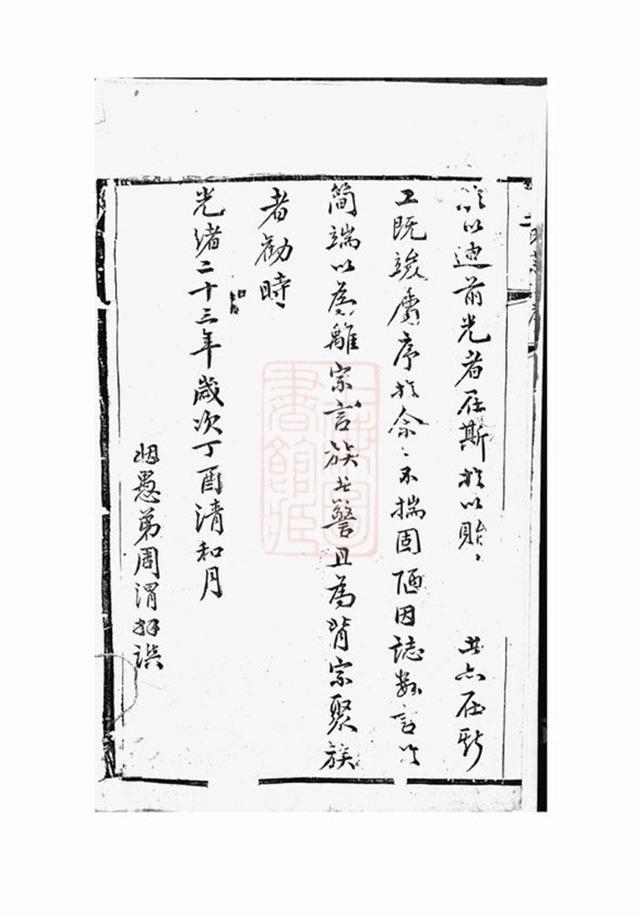 於以迪前光者在斯於以貽〻 其亦在斯
工既竣屬序於余〻不揣固陋因誌數言以
簡端以為離宗言族者警且為背宗聚族
者勸時
光緒二十三年歲次丁酉清和月
姻愚弟周渭拜譔
上海圖書館藏